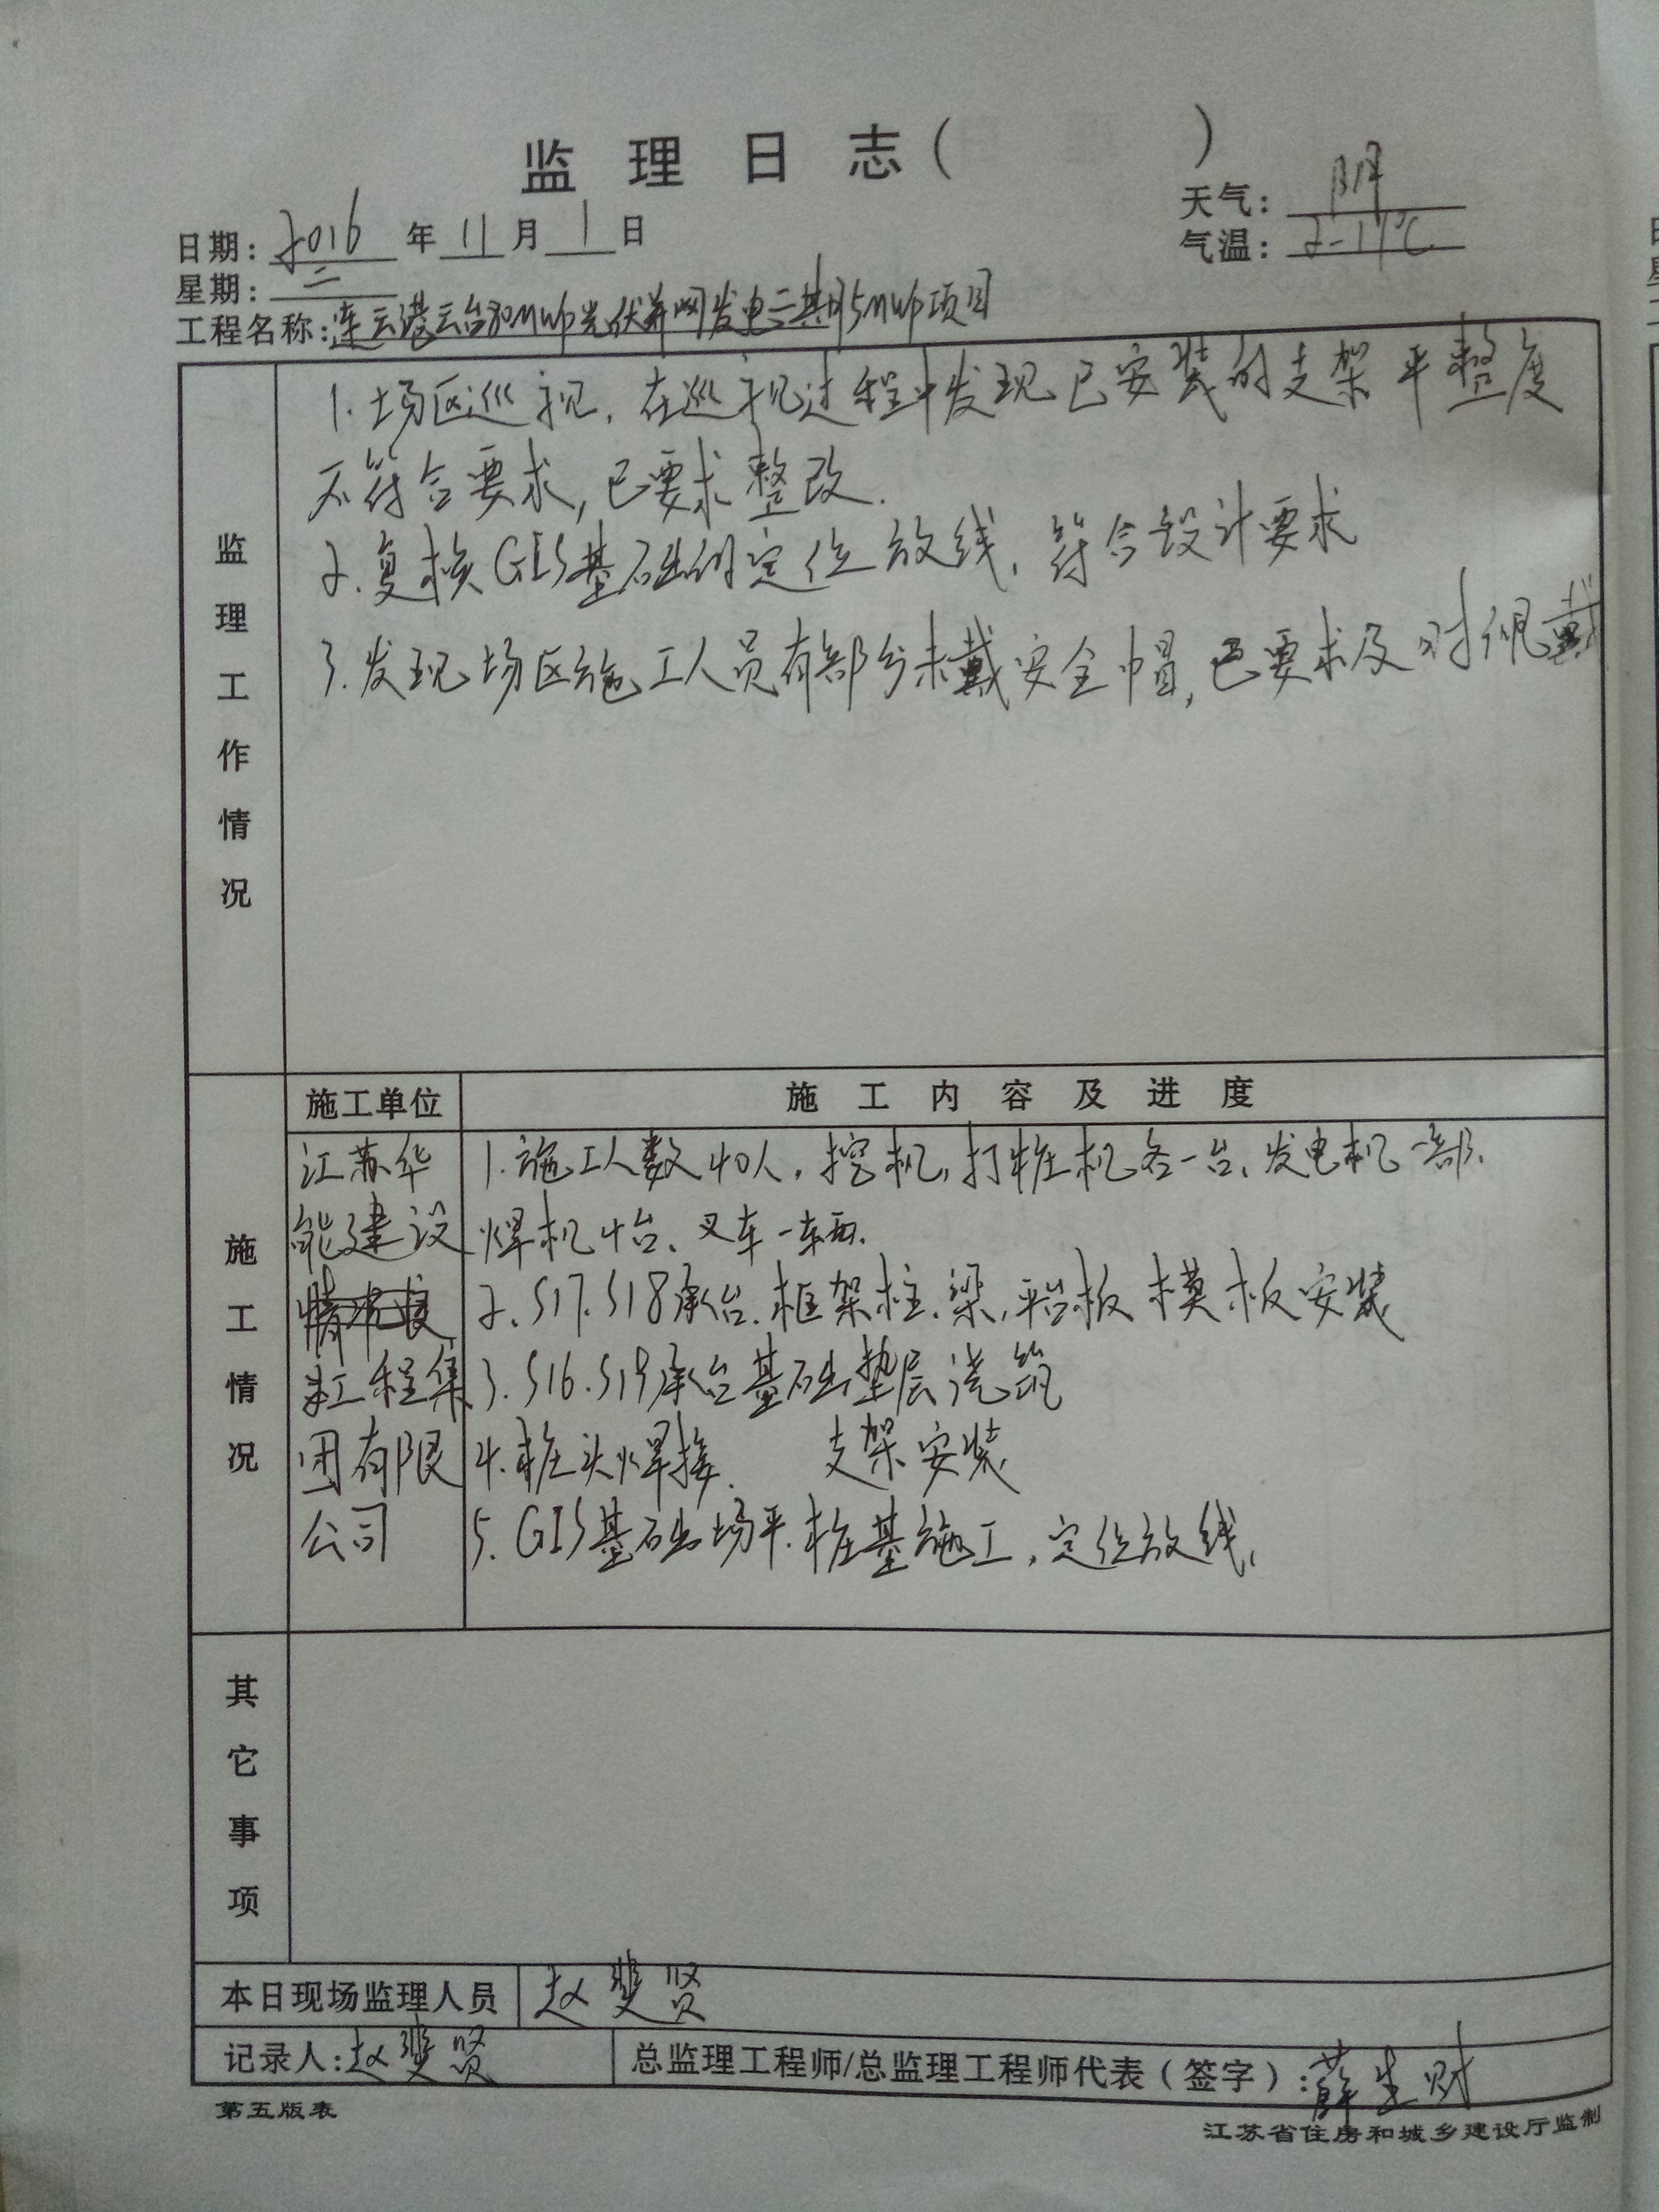 监理日志( )
天气: 阴
日期: 2016 年 11 月 1 日
气温: 2-11℃
星期: 二
工程名称: 连云港云台30MWp光伏并网发电二期15MWp项目
监理工作情况
1. 场区巡视, 在巡视过程中发现已安装的支架平整度
不符合要求, 已要求整改.
2. 复核GIS基础的定位放线, 符合设计要求
3. 发现场区施工人员有部分未戴安全帽, 已要求及时佩戴
施工单位 施工内容及进度
施工情况
江苏华
能建设
工程集
团有限
公司
1. 施工人数40人, 挖机, 打桩机各一台、发电机一部、
焊机4台、叉车一车辆.
2. S17. S18承台. 框架柱、梁, 平台板模板安装
3. S16. S19承台基础垫层浇筑
4. 桩头焊接. 支架安装
5. GIS基础场平. 桩基施工, 定位放线,
其它事项
本日现场监理人员 赵斐贤
记录人: 赵斐贤 总监理工程师/总监理工程师代表(签字): 薛生财
第五版表
江苏省住房和城乡建设厅监制